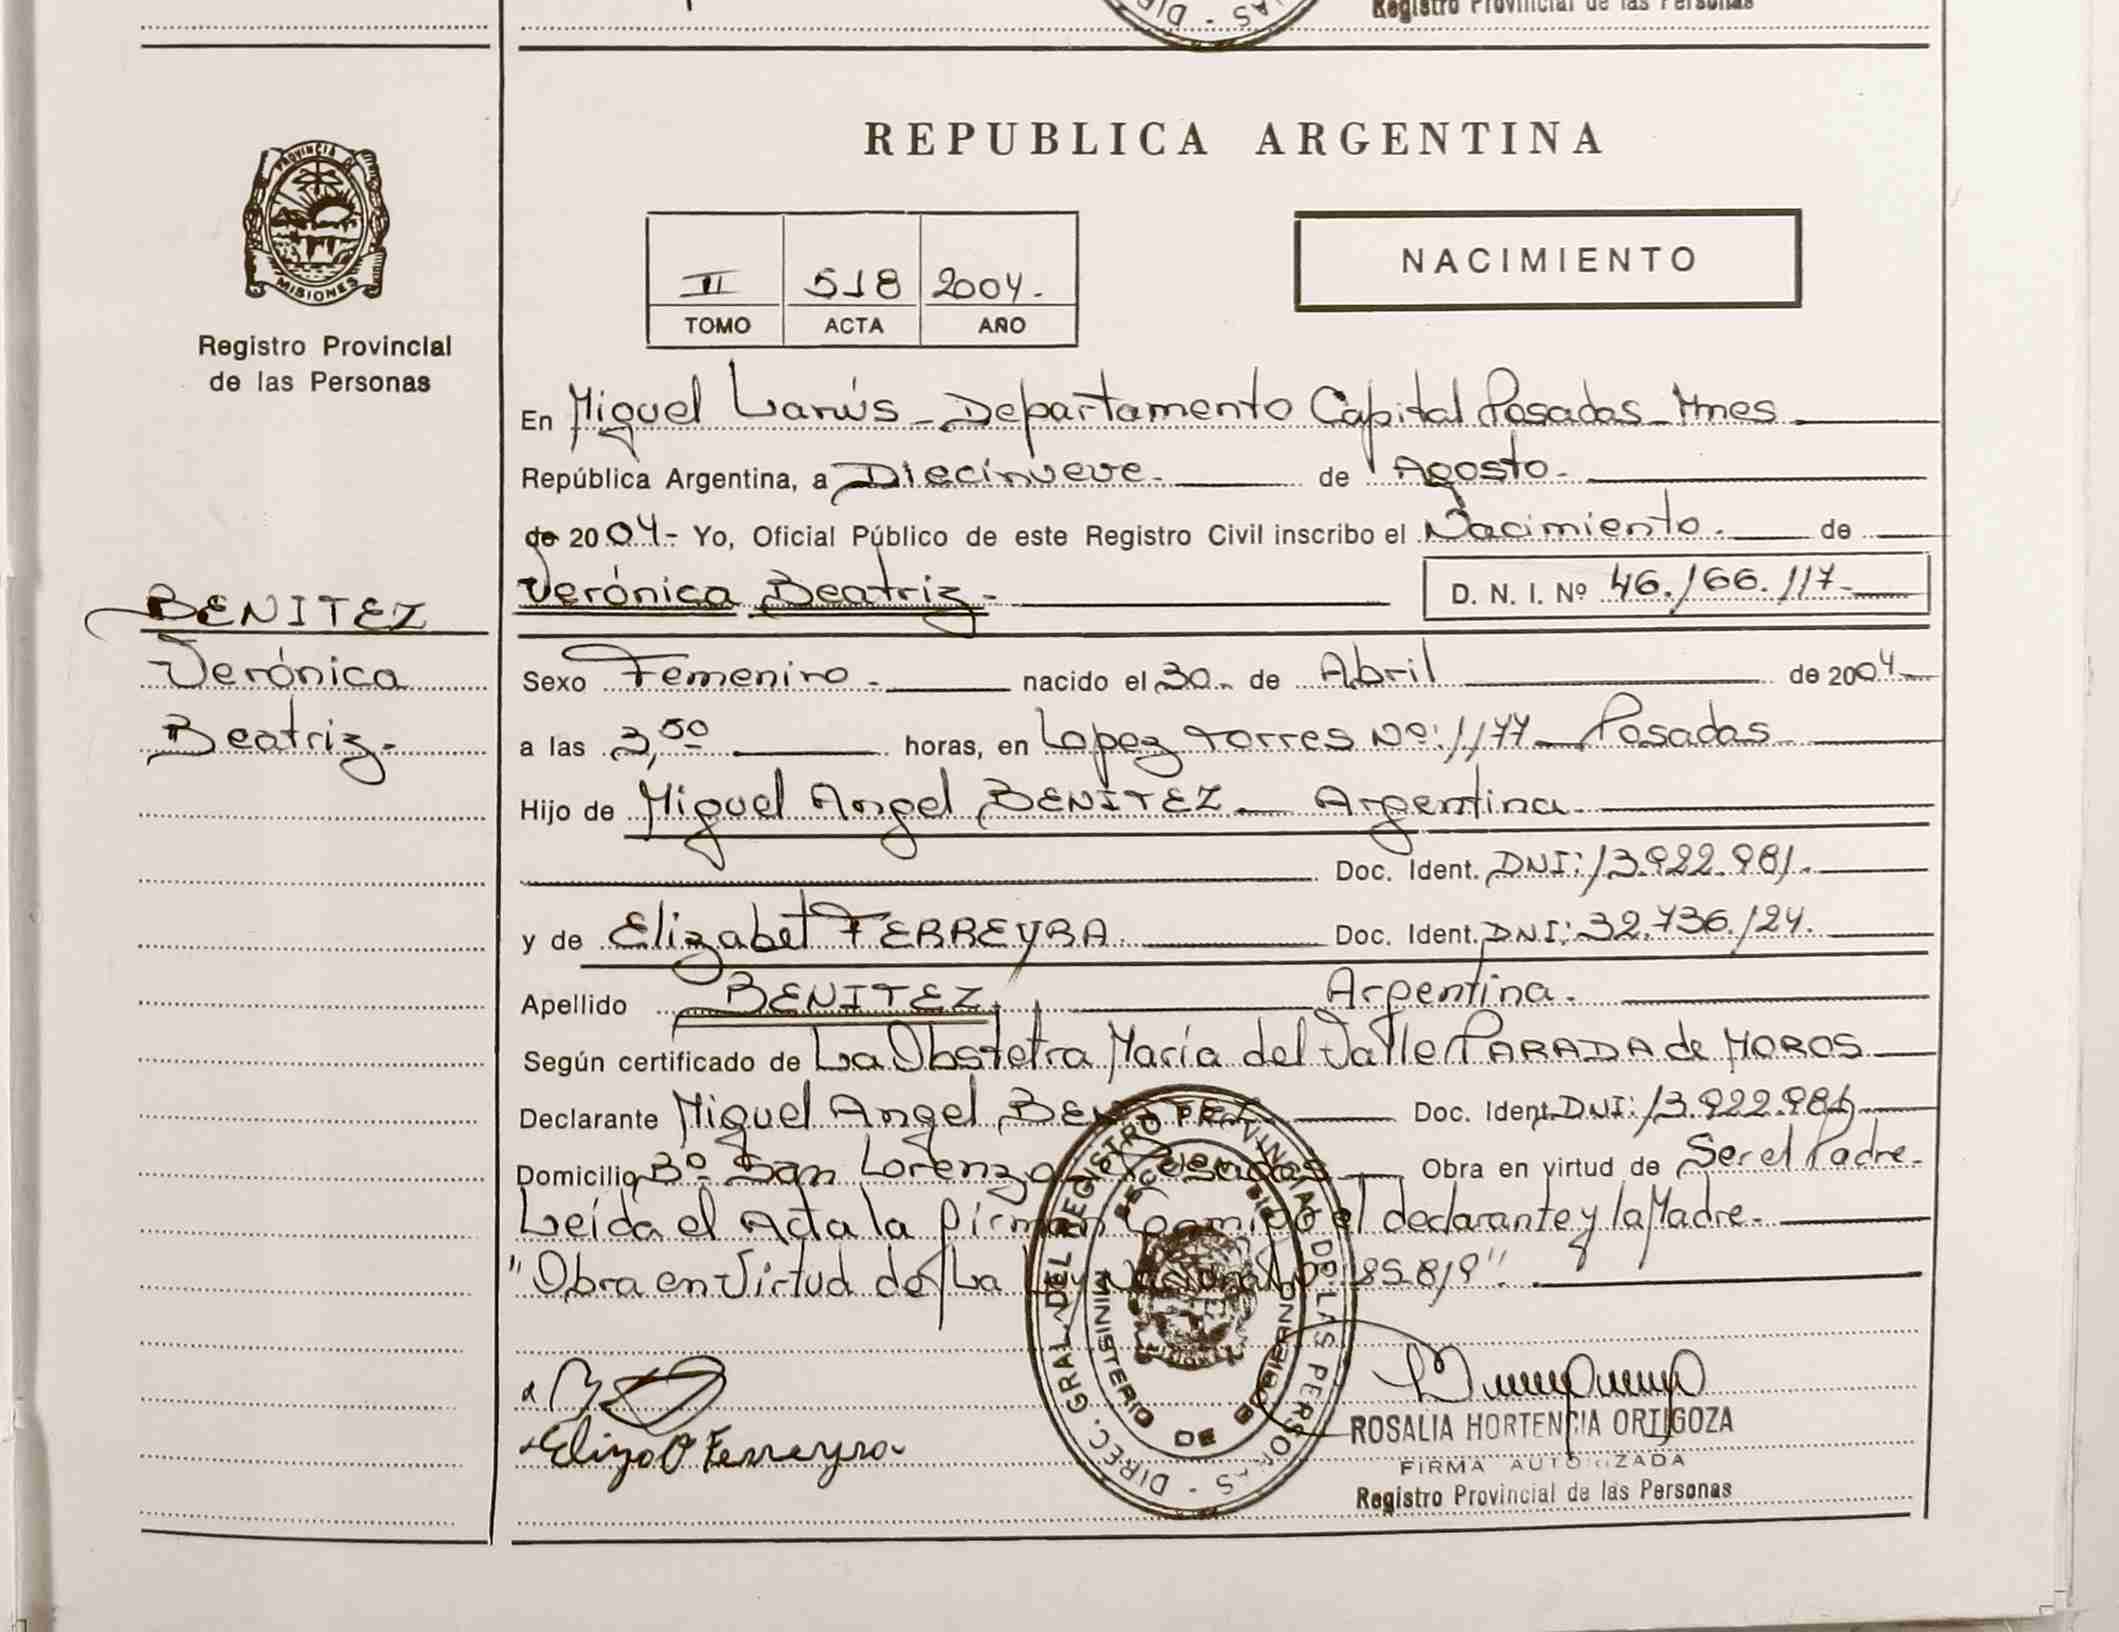 Registro Provincial de las Personas
REPUBLICA ARGENTINA
PROVINCIA DE
MISIONES
Registro Provincial
de las Personas
NACIMIENTO
II 518 2004.-
TOMO ACTA AÑO
En Miguel Lanús - Departamento Capital Posadas - Mnes
República Argentina, a Diecinueve.- de Agosto.-
de 2004.- Yo, Oficial Público de este Registro Civil inscribo el Nacimiento.- de
Verónica Beatriz.- D. N. I. Nº 46.166.117.-
BENITEZ
Verónica
Beatriz.-
Sexo Femenino.- nacido el 30.- de Abril de 2004.-
a las 3,50 horas, en Lopez Torres Nº: 1177 - Posadas
Hijo de Miguel Angel BENITEZ - Argentina.-
Doc. Ident. DNI: 13.922.981.-
y de Elizabet FERREYRA. Doc. Ident. DNI: 32.736.124.
Apellido BENITEZ. Argentina.-
Según certificado de La Obstetra María del Valle PARADA de MOROS
Declarante Miguel Angel BENITEZ Doc. Ident. DNI: 13.922.981
Domicilio Bº San Lorenzo de Posadas Obra en virtud de Ser el Padre.-
Leída el Acta la firman conmigo el declarante y la Madre.-
"Obra en Virtud de La Ley Nacional Nº 25.819".
DIREC. GRAL. DEL REGISTRO PROVINCIAL DE LAS PERSONAS
MINISTERIO DE GOBIERNO
Ferreyra
ROSALIA HORTENCIA ORTIGOZA
FIRMA AUTORIZADA
Registro Provincial de las Personas